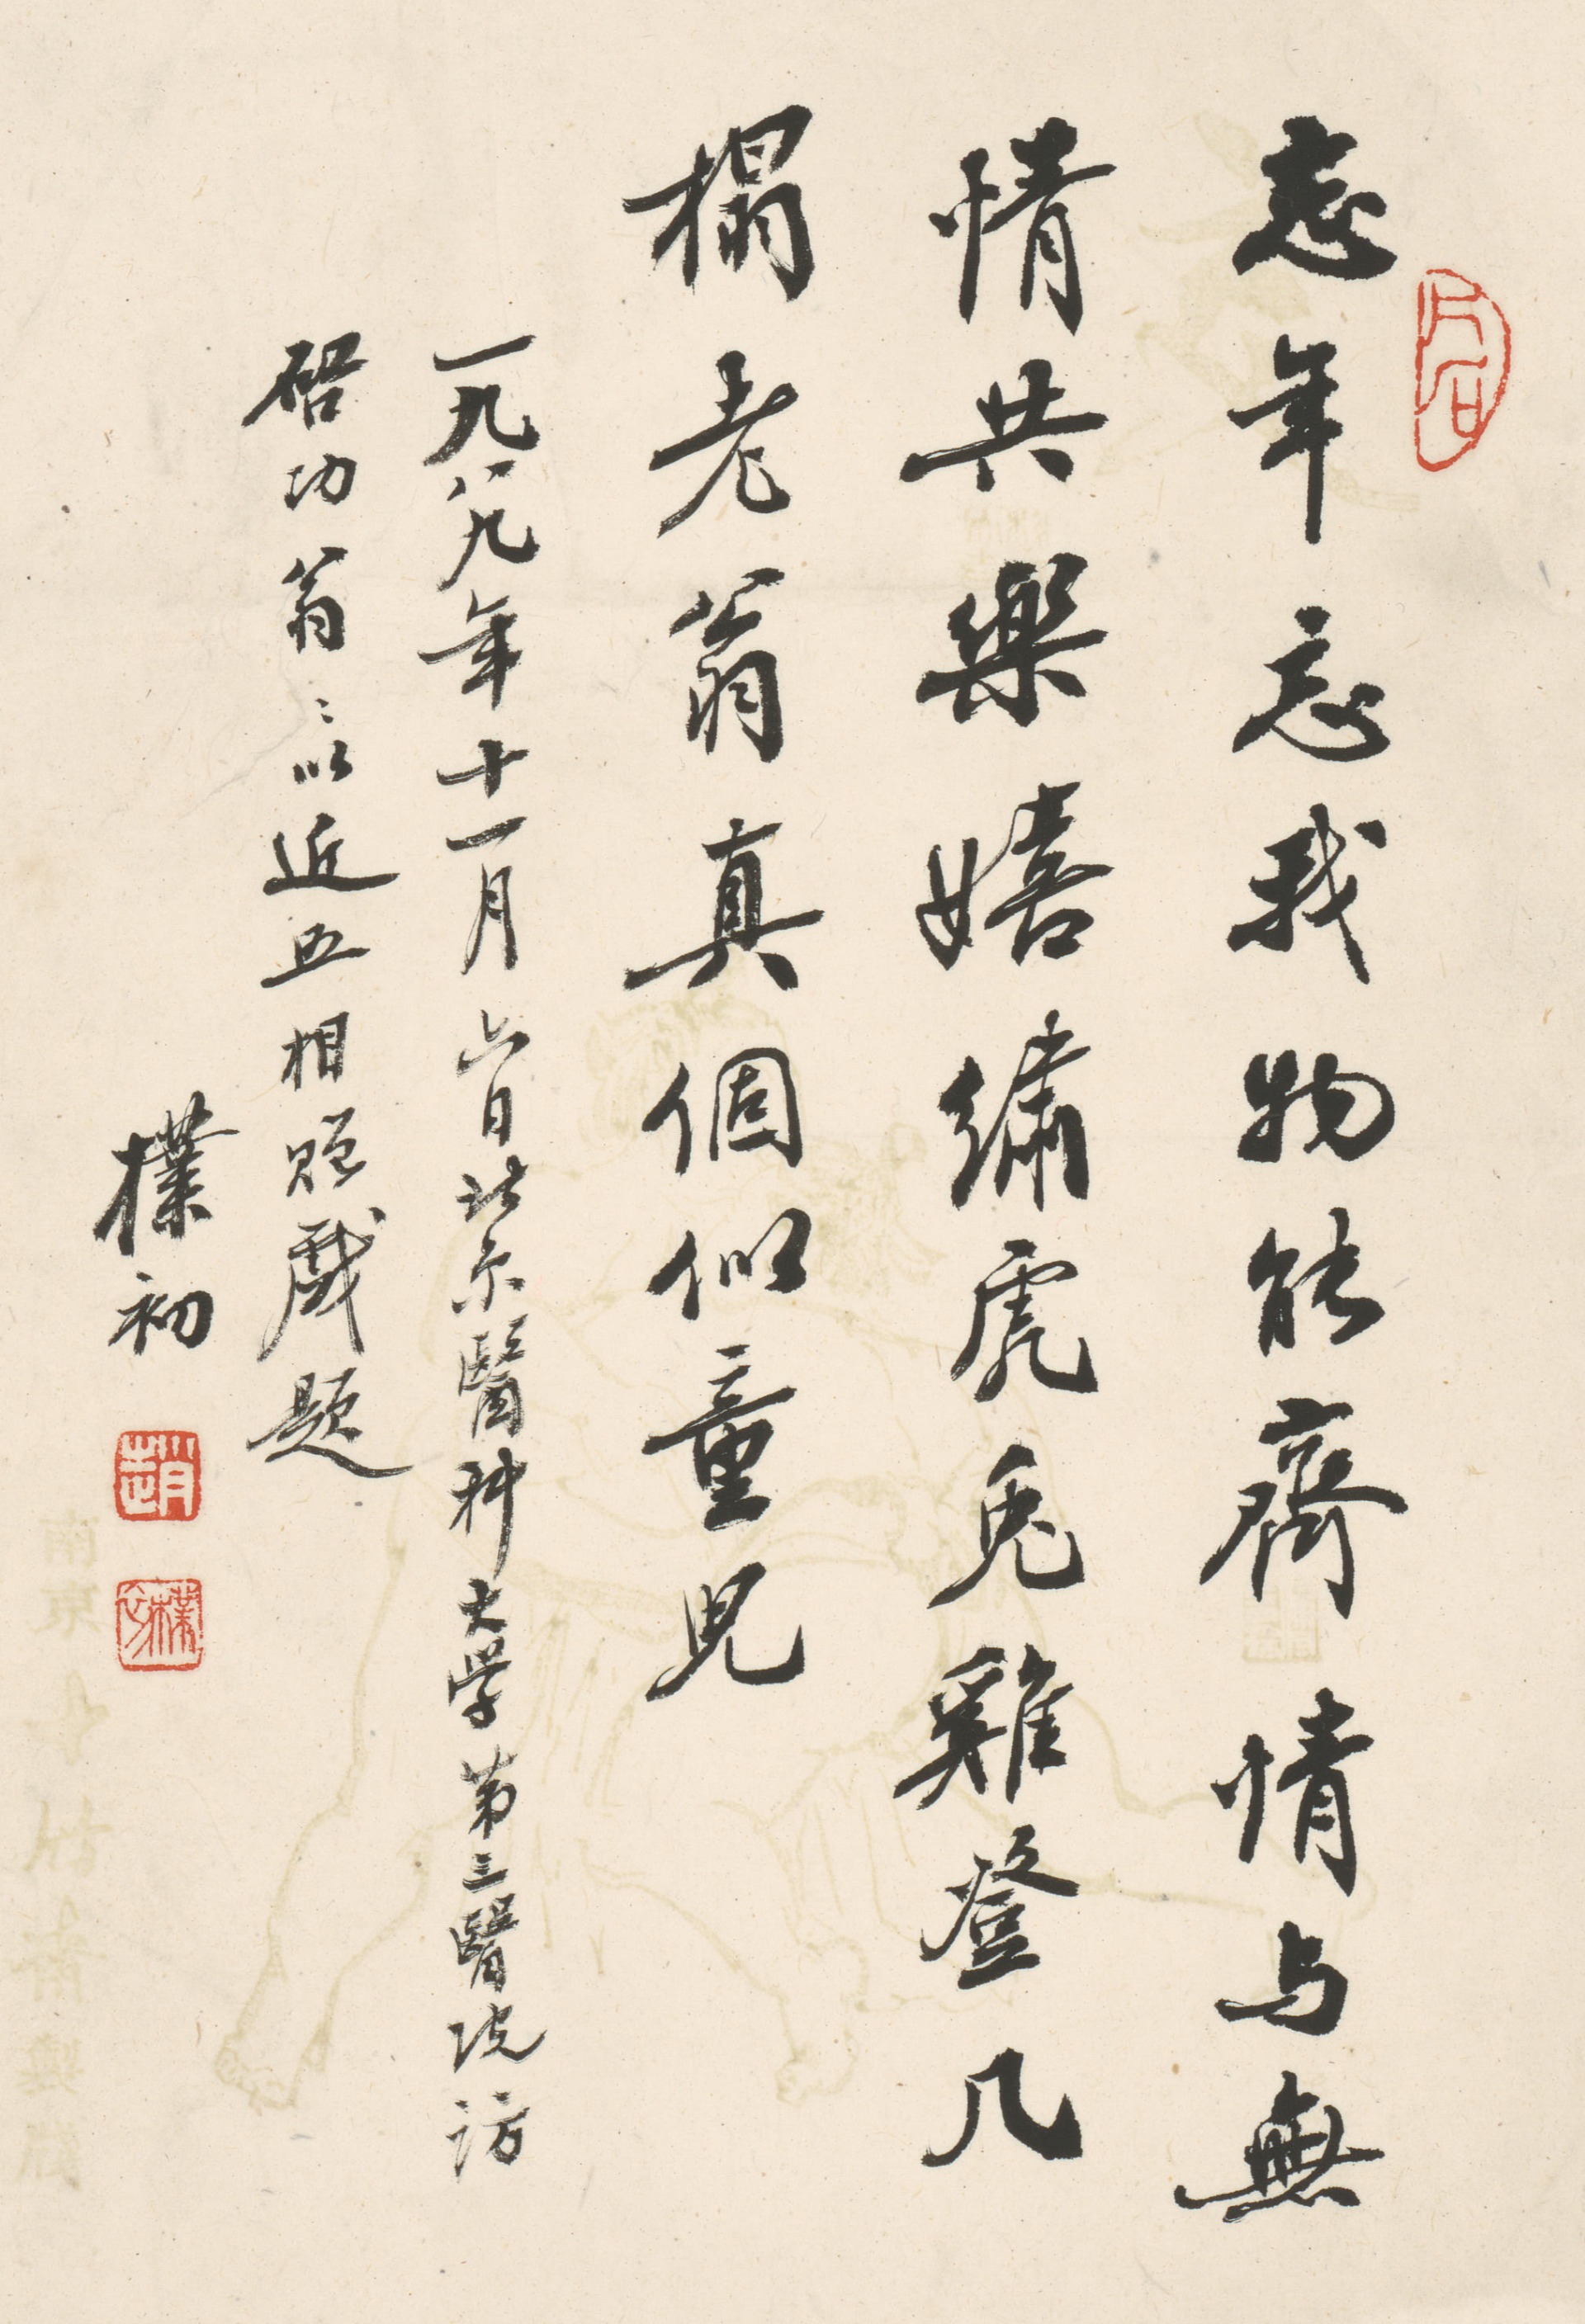 忘年忘我物能齊情与無
情共樂嬉繡虎兎雞登几
榻老翁真個似童兒
一九八九年十一月六日北京醫科大学第三醫院訪
啓功翁〻以近照相贈戲題
樸初
趙
樸初